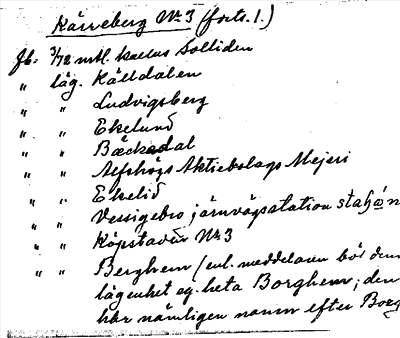 Kärreberg No. 3 (forts. 1.)
Jb. 3/72 mtl. kallas Solliden
" läg. Källdalen
" " Ludvigsberg
" " Ekelund
" " Bäckadal
" " Alfshögs Aktiebolags Mejeri
" " Ekelid
" " Vessigebro järnvägsstation
" " Köpstaden No. 3
" " Berghem / enl. meddelaren bör denn
lägenhet eg. heta Borghem; den
har nämligen namn efter Borg